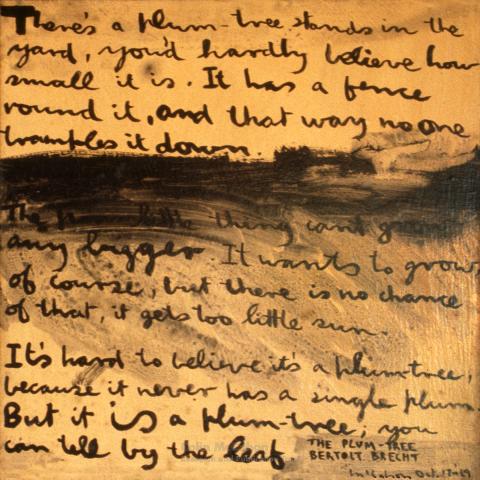 There's a plum-tree stands in the
yard, you'd hardly believe how
small it is. It has a fence
round it, and that way no one
tramples it down.
The little thing can't grow
any bigger. It wants to grow,
of course, but there is no chance
of that, it gets too little sun.
It's hard to believe it's a plum-tree,
because it never has a single plum.
But it is a plum-tree; you
can tell by the leaf.
THE PLUM-TREE
BERTOLT BRECHT
Oct.